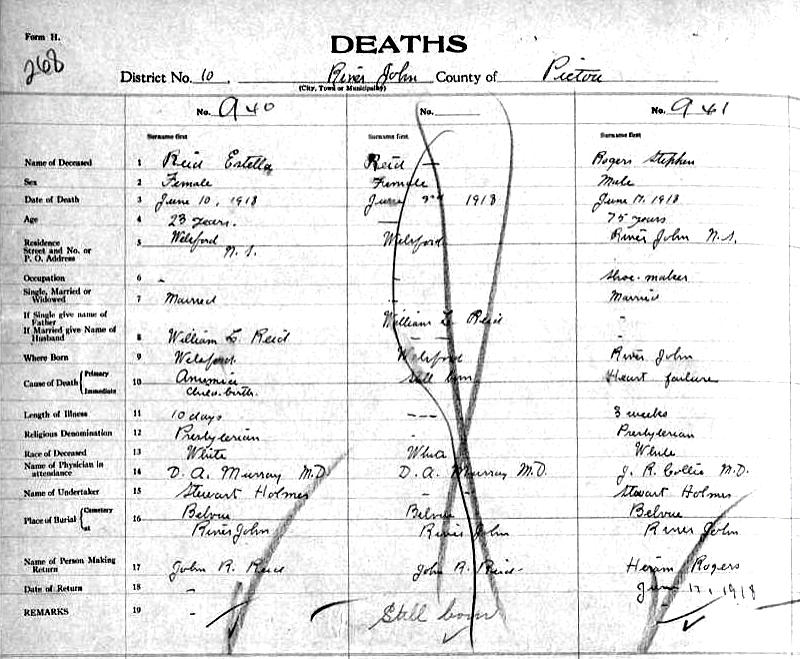 Form H.
268
DEATHS
District No. 10 River John County of Pictou
(City, Town or Municipality)
No. 940 No. No. 941
Surname first Surname first Surname first
Name of Deceased 1 Reid Estella Reid — Rogers Stephen
Sex 2 Female Female Male
Date of Death 3 June 10, 1918 June 1918 June 17, 1918
Age 4 23 years. — 75 years
Residence
Street and No. or
P. O. Address 5 Welsford N.S. Welsford River John N.S.
Occupation 6 - - Shoe-maker
Single, Married or
Widowed 7 Married - Married
If Single give name of
Father William L. Reid -
If Married give Name of
Husband 8 William L. Reid - -
Where Born 9 Welsford. Welsford River John
Cause of Death Primary
Immediate 10 Anemia Still born Heart failure
Child-birth.
Length of Illness 11 10 days --- 3 weeks
Religious Denomination 12 Presbyterian - Presbyterian
Race of Deceased 13 White White White
Name of Physician in
attendance 14 D. A. Murray M.D. D. A. Murray M.D. J. R. Collie M.D.
Name of Undertaker 15 Stewart Holmes - Stewart Holmes
Place of Burial Cemetery
at 16 Belvue Belvue Belvue
River John River John River John
Name of Person Making
Return 17 John R. Reid John R. Reid Hiram Rogers
Date of Return 18 - June 17, 1918
REMARKS 19 - Still born -